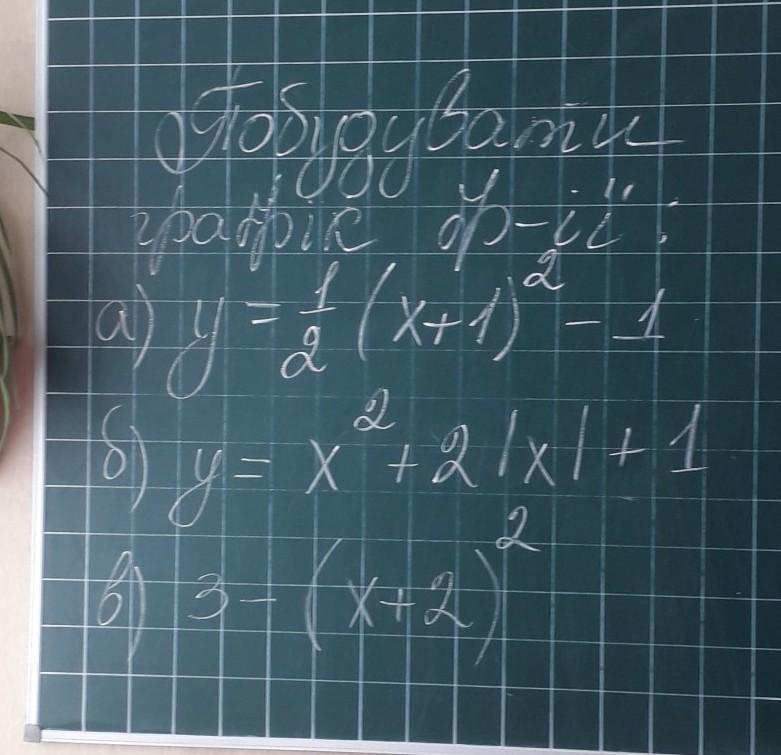 Побудувати
графік ф-ії:
а) y = 1/2 (x+1)² - 1
б) y = x² + 2|x| + 1
в) 3 - (x+2)²